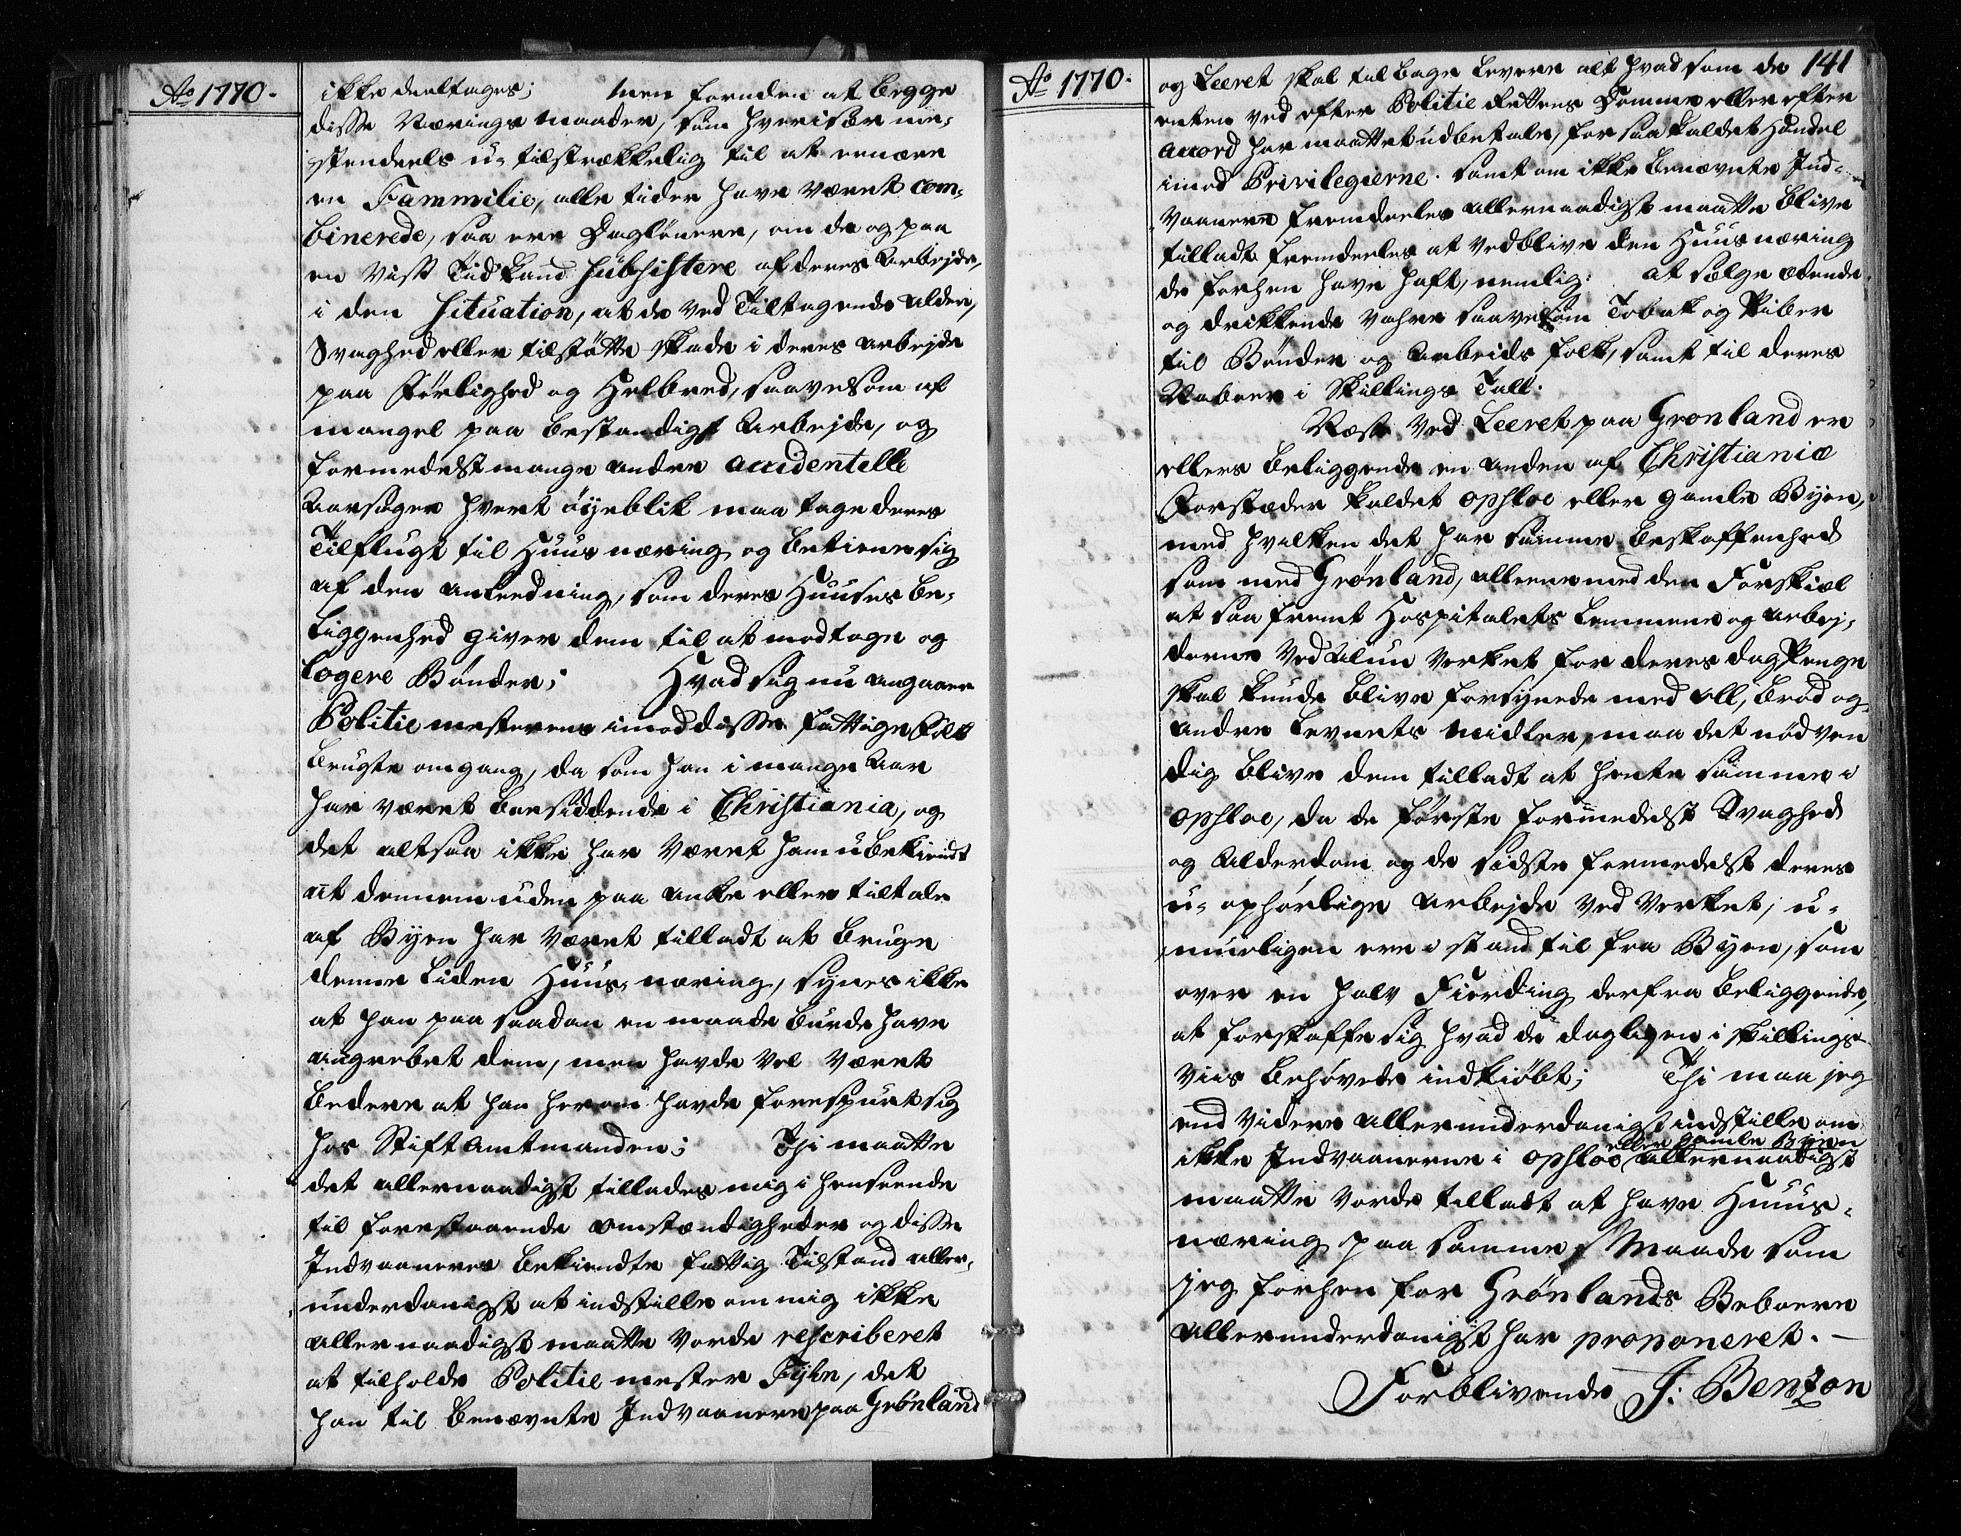 Ao 1770.
ikke deeltages; Men foruden at begge
disse Nærings maader, som hver især mee-
stendeels u-tilstrækkelig til at ernære
en Fammilie, alle tider have været com-
binerede, saa ere Daglønere, om de og paa
en vist Tid kand subsistere af deres Arbejde,
i den situation, at de ved Tiltagende Alder,
Svaghed eller tilstøtte skade i deres Arbejde
paa Førlighed og Helbred, saavelsom af
mangel paa bestandigt Arbejde, og
formedelst mange andre accidentelle
Aarsager hvert øyeblik maa tage deres
Tilflugt til Huus næring og betiene sig
af den Anleedning, som deres Huuses be-
liggenhed giver dem til at modtage og
logere Bønder; Hvad sig nu angaaer
Politie mesterens imod disse fattige Folk
brugte omgang, da som han i mange Aar
har været boesiddende i Christiania, og
det altsaa ikke har været ham ubekiendt
at dennem uden paa anke eller tiltale
af Byen har været tilladt at bruge
denne liden Huus næring, synes ikke
at han paa saadan en maade burde have
angrebet dem, men havde vel været
bedere at han herom havde forespurt sig
hos Stiftamtmanden; Thi maatte
det allernaadigst tillades mig i henseende
til forestaaende omstændigheder og disse
Indvaaneres bekiendte fattig Tilstand aller-
underdanigst at indstille om mig ikke
allernaadigst maatte vorde rescriberet
at tilholde Politie mester Fyhn, det
han til benævnte Indvaanere paa Grønland
Ao 1770.
141
og Leeret skal tilbage levere alt hvad som de
enten ved efter Politie Rettens Domme eller efter
accord har maattet udbetale, for saa kaldet Handel
imod Privilegierne. samt om ikke benævnte Ind-
vaanere fremdeeles allernaadigst maatte blive
tilladt fremdeeles at vedblive den Huusnæring
de forhen have haft, nemlig: at sælge ædende
og drikkende vahre saavelsom Tobak og Piber
til Bønder og Arbeids folk, samt til deres
Naboer i Skillings Tall.
Næst ved Leeret paa Grønland er
ellers beliggende en anden af Christianiæ
Forstæder kaldet Opsloe eller gamle Byen,
med hvilken det har samme beskaffenhed
som med Grønland, alleene med den Forskiel
at saa fremt Hospitalets Lemmer og Arbej-
derne ved Alun verket for deres dag Penge
skal kunde blive forsynede med øll, brød og
andre Levnets midler, maa det nødven
dig blive dem tilladt at hente samme i
Opsloe, da de første formedelst Svaghed
og Alderdom og de sidste formedelst deres
u-ophørlige Arbejde ved verket, u-
mueligen ere i stand til fra Byen, som
over en halv Fierding derfra beliggende,
at forskaffe sig hvad de dagligen i skillings
viis behøvede indkiøbt; Thi maa jeg
end videre allerunderdanigst indstille om
eller gamle Byen
ikke Indvaanerne i Opsloe allernaadigst
maatte vorde tilladt at have Huus-
næring paa samme Maade som
jeg forhen for Grønlands Beboere
allerunderdanigst har proponeret. –
Forblivende J: Benzon